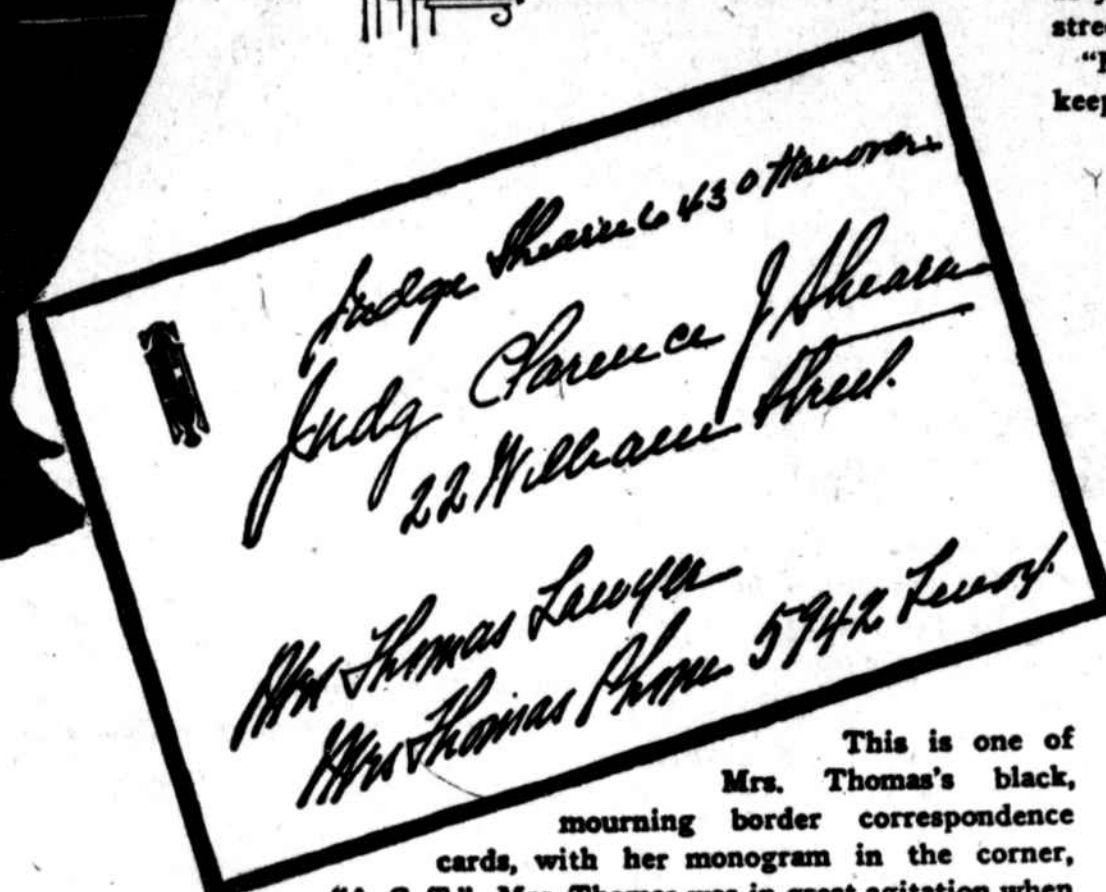 stre
"I
keep
Judge Shearn 6430 Hanover.
Judg Clarence J Shearn
22 William Street.
Mrs Thomas Lawyer
Mrs Thomas Phone 5942 Lenox.
This is one of
Mrs. Thomas's black,
mourning border correspondence
cards, with her monogram in the corner,
Mrs. Thomas was in great agitation when